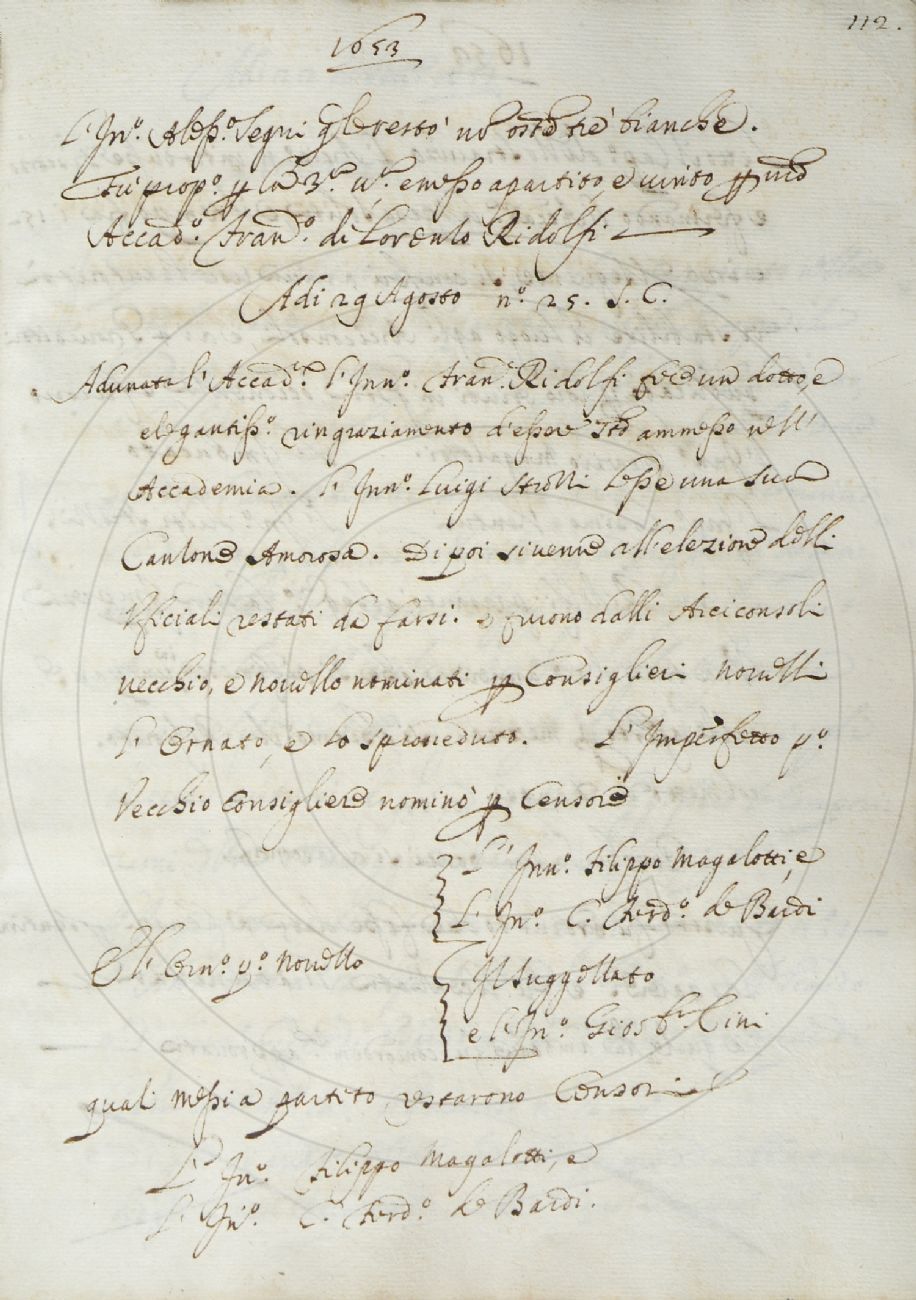 112.
1653
L'Inn.º Aless.º Segni
bianche.
Fu prop.º p la 3.ª v.ª e messo a partito e vinto p
Accad.º Fran.º di Lorenzo Ridolfi
Adi 29 Agosto n.º 25. S. C.
Adunata l'Accad.ª l'Inn.º Fran.º Ridolfi fece un dotto, e
elegantiss.º ringraziamento d'essere stº ammesso nell'
Accademia. l'Inn.º Luigi Strozzi lesse una sua
Canzone Amorosa. Di poi si venne all'elezione delli
Vficiali restati da farsi. e furono dalli Arciconsoli
vecchio, e novello nominati p Consiglieri novelli
l'Ornato, e lo Sproveduto. L'Imperfetto p.º
Vecchio Consigliere nominò p Censore
L' Inn.º Filippo Magalotti, e
L' Inn.º C. Ferd.º de Bardi
E l'Orn.º p.º Novello
Il Suggellato
e l'Inn.º Gio:
quali messi a partito restarono Censori
L' Inn.º Filippo Magalotti, e
L' Inn.º C. Ferd.º de Bardi.